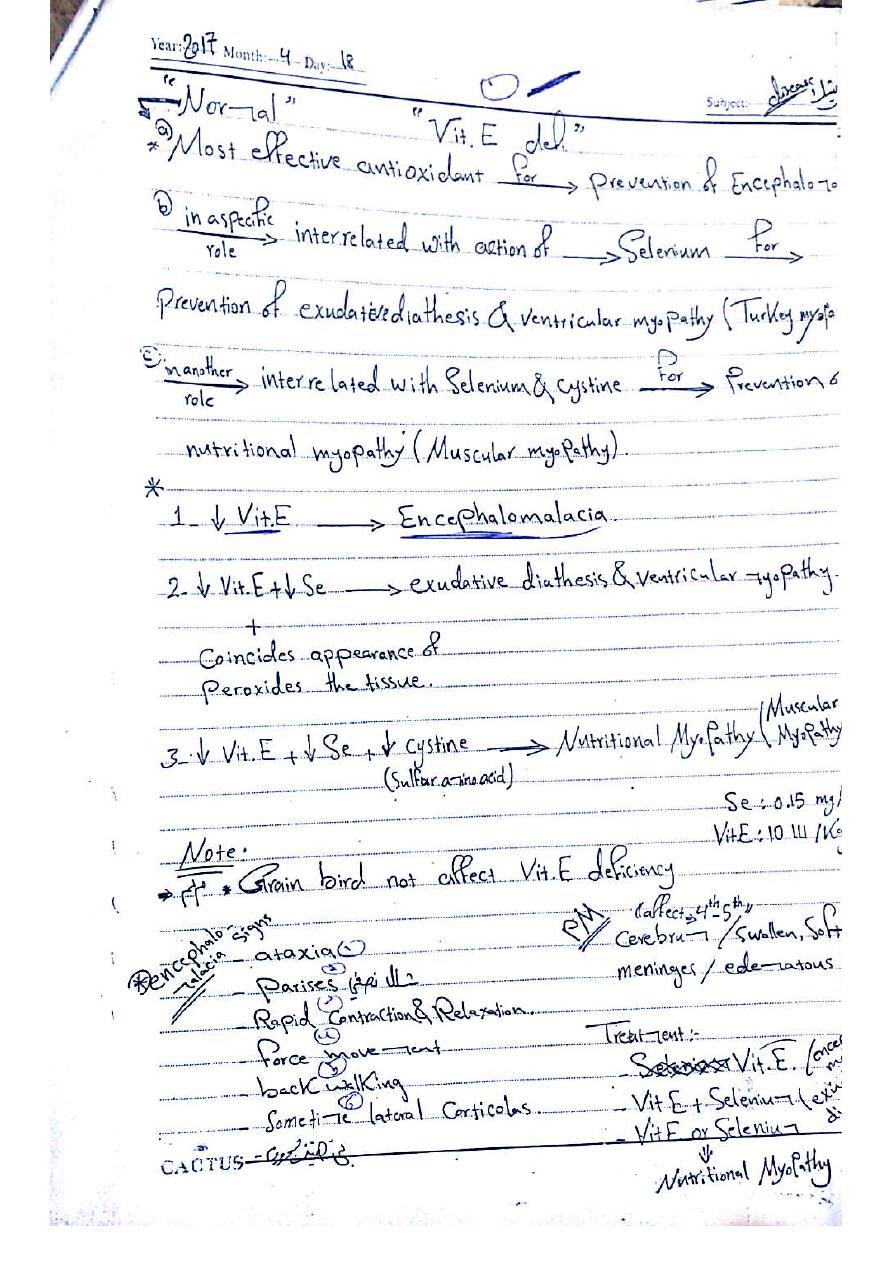 Year: 2017 Month: 4 Day: 18
Subject: disease
"Normal"
"Vit. E def."
a) * Most effective antioxidant for → Prevention of Encephalo
b) in a specific role → interrelated with action of → Selenium for →
Prevention of exudative diathesis & ventricular myopathy (Turkey myopa
c) in another role → interrelated with Selenium & Cystine for → Prevention
nutritional myopathy (Muscular myopathy).
*
1- ↓ Vit.E → Encephalomalacia.
2- ↓ Vit.E + ↓ Se → exudative diathesis & ventricular myopathy.
+
Coincides appearance of
Peroxides the tissue.
3- ↓ Vit.E + ↓ Se + ↓ cystine → Nutritional Myopathy (Muscular Myopathy
(Sulfur amino acid)
Se : 0.15 mg/
Vit E : 10 IU /Kg
Note:
* Grain bird not affect Vit.E deficiency
* encephalomalacia signs
- ataxia 1
- Parises 2
- Rapid Contraction & Relaxation. 3
- force movement 4
- back walking 5
- Sometime lateral Corticolas. 6
PM
(affect 4th-5th"
Cerebrum / Swollen, Soft
meninges / edematous
Treatment :-
- Vit. E. (ence
- Vit E + Selenium (exu
di
- Vit E or Selenium
↓
Nutritional Myopathy
CACTUS